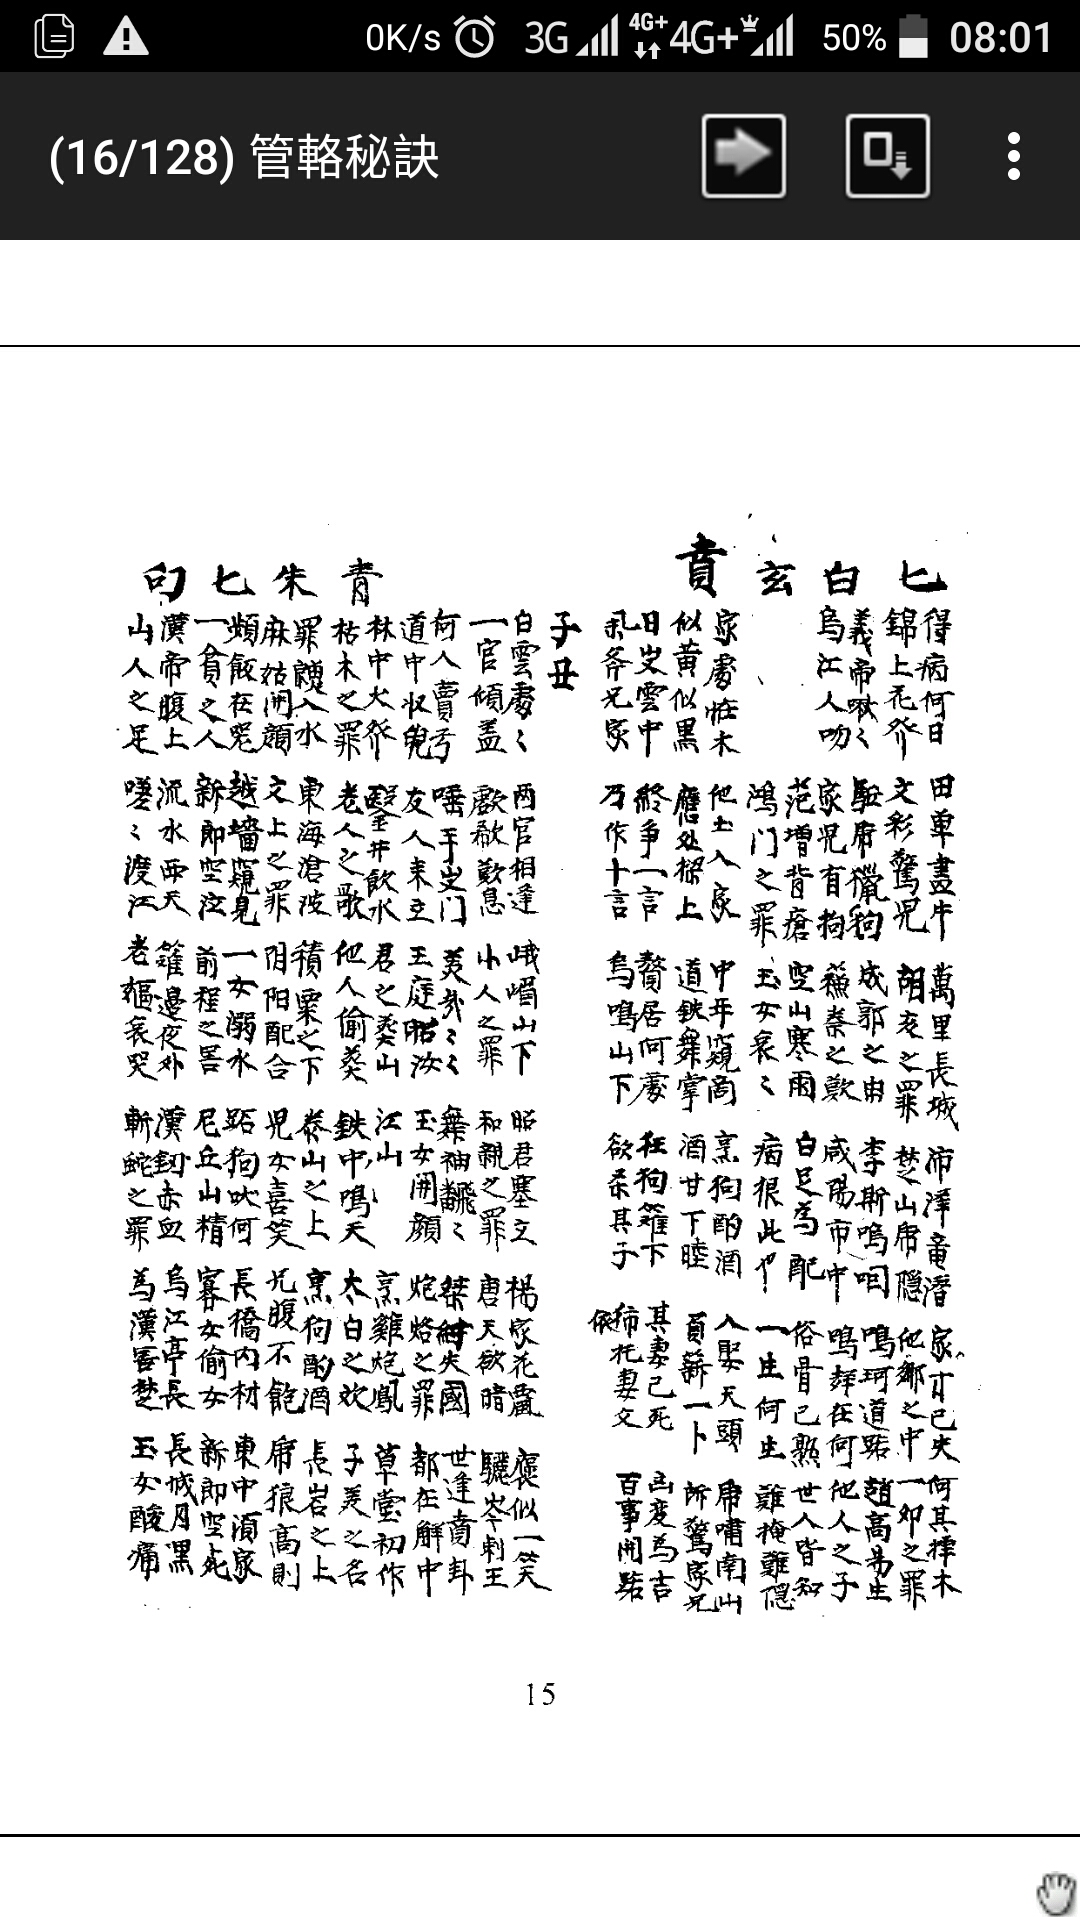 0K/s 3G 4G+ 4G+ 50% 08:01
(16/128) 管輅秘訣
匕 白 玄 賁
得病何日 田單盡牛 萬里長城 沛澤竜潛 家丁已失 何其擇木
錦上花發 文彩驚児 胡亥之罪 楚山席隠 他鄉之中 一卵之罪
義帝啾々 駈席獵狗 成郭之由 李斯鳴咽 鳴珂道路 趙高易生
烏江人吻 家児有拘 蘇秦之歎 咸陽市中 鳴在何 他人之子
范增背瘡 空山寒雨 白足為配 俗骨已熟 世人皆知
鴻门之罪 玉女哀々 病根此 一生何生 難掩難隠
家處在木 他土入家 中年窺高 烹狗酌酒 入娶天頭 席嘯南山
似黄似黒 應处樑上 道鉄舞掌 酒甘下睦 新一卜 所驚家兄
日出雲中 終争一言 贅居何處 狂狗籬下 其妻已死 凶变為吉
兄家 乃作十言 烏鳴山下 欲杀其子 托妻文 百事開路
子丑
青 朱 匕 句
白雲處々 两官相逢 峨嵋山下 昭君塞立 楊家花園 褒似一笑
一官傾盖 歔欷歎息 小人之罪 和親之罪 唐天欲暗 驪岑刺王
何人賣弓 唾手出门 美哉々々 舞袖翻々 桀紂失國 世逢賁卦
道中收兔 友人来立 玉庭昭汝 玉女開顔 炮烙之罪 都在解中
林中犬發 鑿井飲水 君之葵山 江山 烹雞炮鳳 草堂初作
枯木之罪 老人之歌 他人偷葵 鉄中鳴天 太白之欢 子美之名
罪體入水 東海滄波 積粟之下 泰山之上 烹狗酌酒 長岩之上
麻姑開顔 文上之罪 阴阳配合 児女喜笑 兄腹不飽 席狼高則
頻飯在 越墻窺見 一女溺水 跖狗吠何 長橋内材 東中須家
一貧之人 新郎空泣 前程之害 尼丘山精 寡女偷女 新郎空死
漢帝腹上 流水西天 籬邊夜外 漢釼赤血 烏江亭長 長城月黒
山人之足 嗟々渡江 老嫗哀哭 斬蛇之罪 為漢害楚 玉女酸痛
15